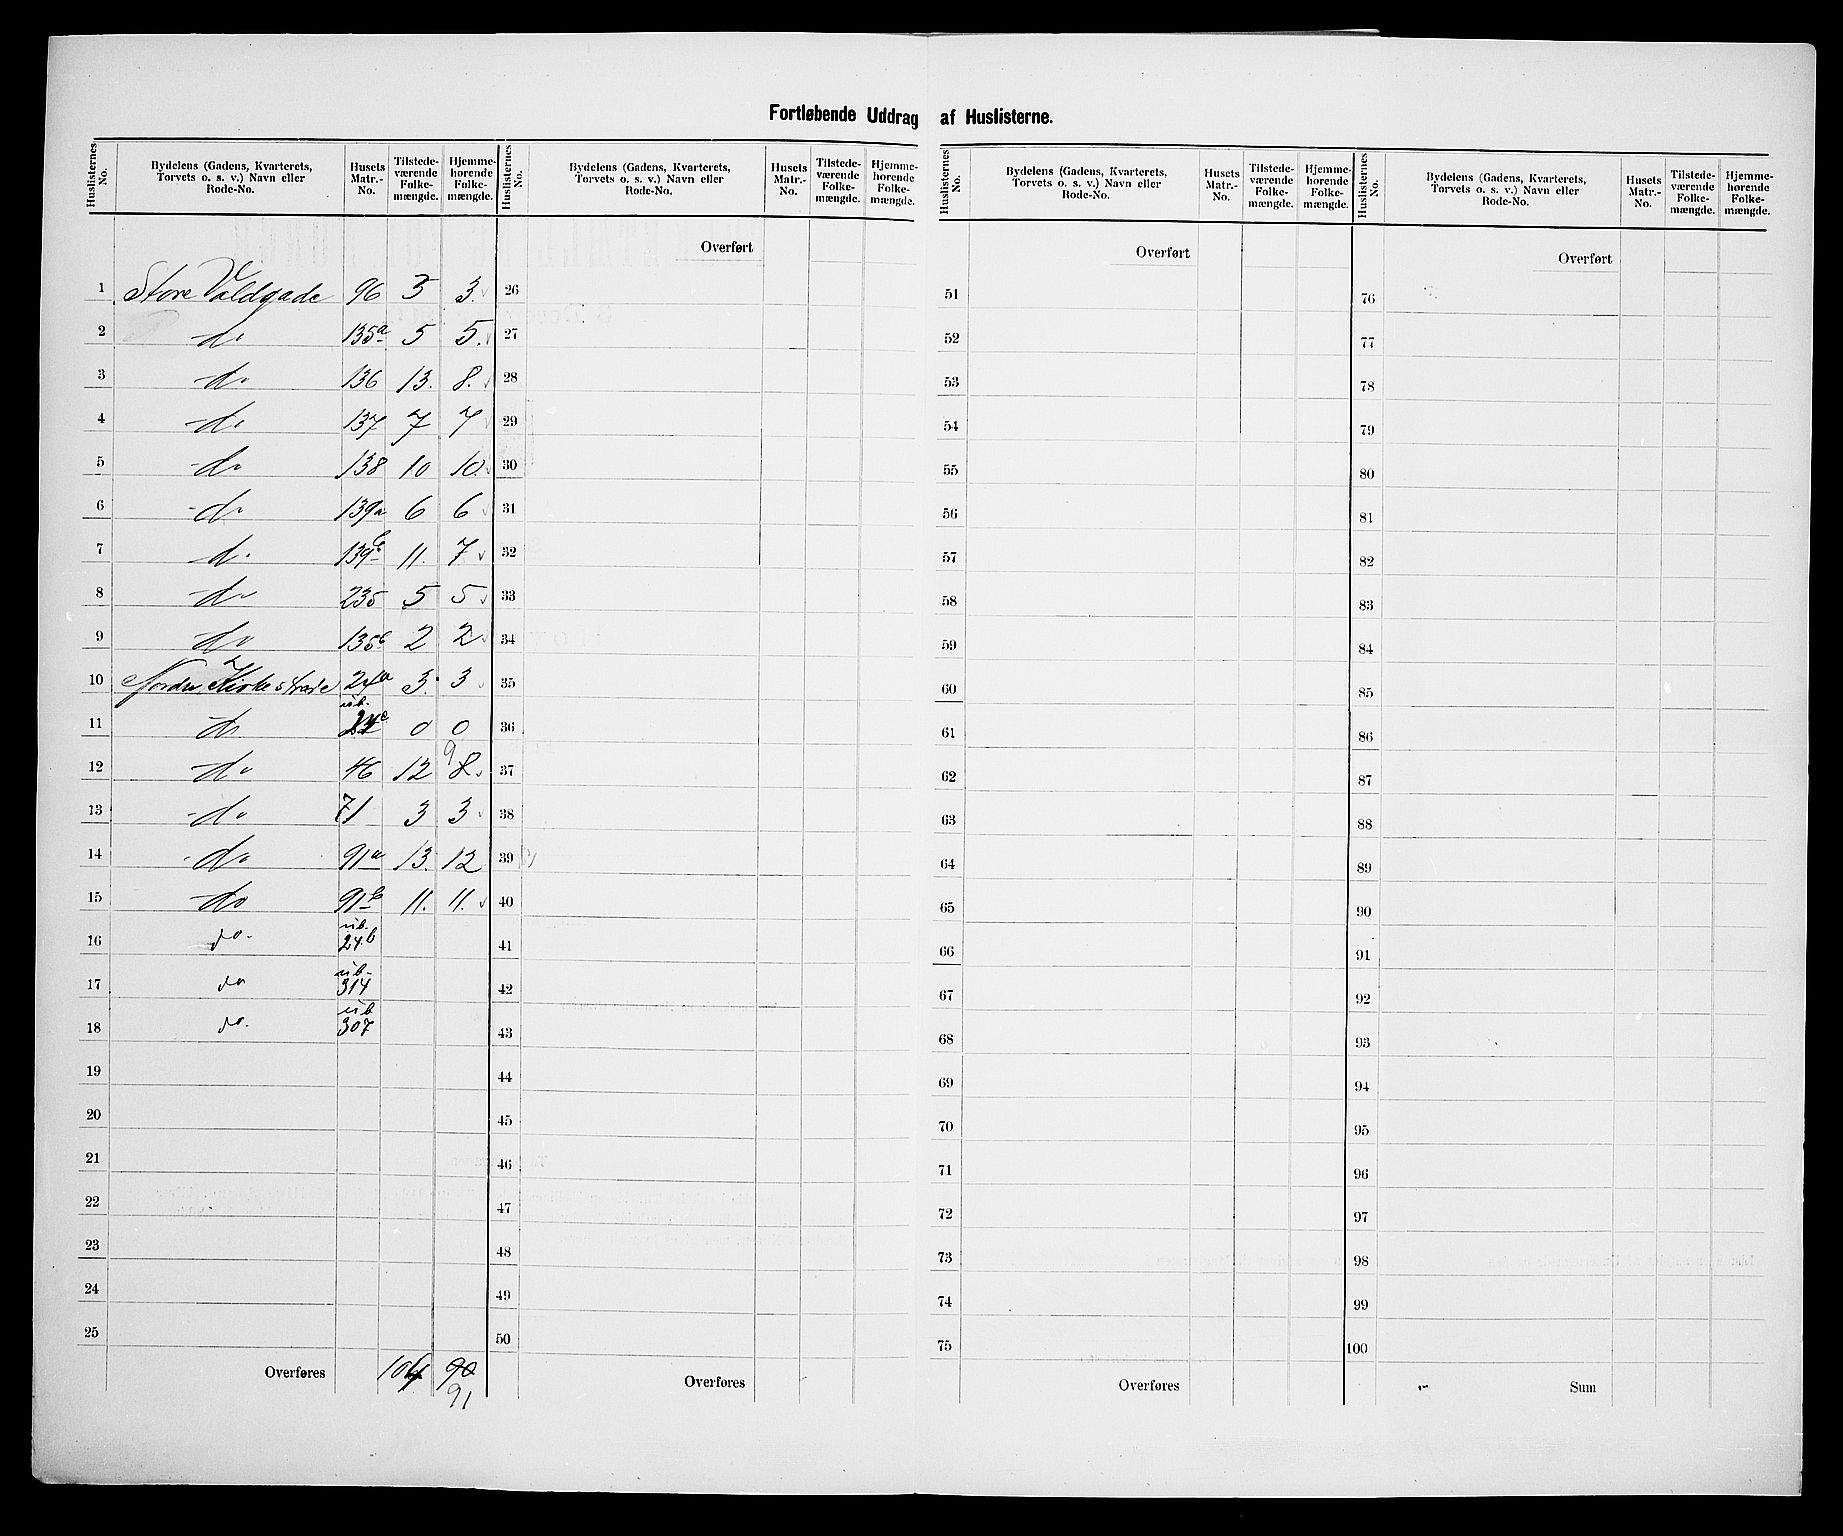 Fortløbende Uddrag af Huslisterne.
Huslisternes No. Bydelens (Gadens, Kvarterets, Torvets o. s. v.) Navn eller Rode-No. Husets Matr.-No. Tilstedeværende Folkemængde. Hjemmehorende Folkemængde.
1 Store Voldgade 96 3 3.
2 do 135a 5 5.
3 do 136 13. 8.
4 do 137 7 7
5 do 138 10 10
6 do 139a 6 6
7 do 139b 11. 7
8 do 235 5 5
9 do 135b 2 2
10 Nordre Kirkestræde 24a 3. 3
11 do ub. 24c 0 0
12 do 46 12 9 8
13 do 71 3 3
14 do 91a 13. 12
15 do 91b 11. 11.
16 do. ub. 24b
17 do ub. 314
18 do. ub 307
19
20
21
22
23
24
25
Overføres 104 90
91
Huslisternes No. Bydelens (Gadens, Kvarterets, Torvets o. s. v.) Navn eller Rode-No. Husets Matr.-No. Tilstedeværende Folkemængde. Hjemmehorende Folkemængde.
Overført
26
27
28
29
30
31
32
33
34
35
36
37
38
39
40
41
42
43
44
45
46
47
48
49
50
Overføres
Huslisternes No. Bydelens (Gadens, Kvarterets, Torvets o. s. v.) Navn eller Rode-No. Husets Matr.-No. Tilstedeværende Folkemængde. Hjemmehorende Folkemængde.
Overført
51
52
53
54
55
56
57
58
59
60
61
62
63
64
65
66
67
68
69
70
71
72
73
74
75
Overføres
Huslisternes No. Bydelens (Gadens, Kvarterets, Torvets o. s. v.) Navn eller Rode-No. Husets Matr.-No. Tilstedeværende Folkemængde. Hjemmehorende Folkemængde.
Overført
76
77
78
79
80
81
82
83
84
85
86
87
88
89
90
91
92
93
94
95
96
97
98
99
100
Sum